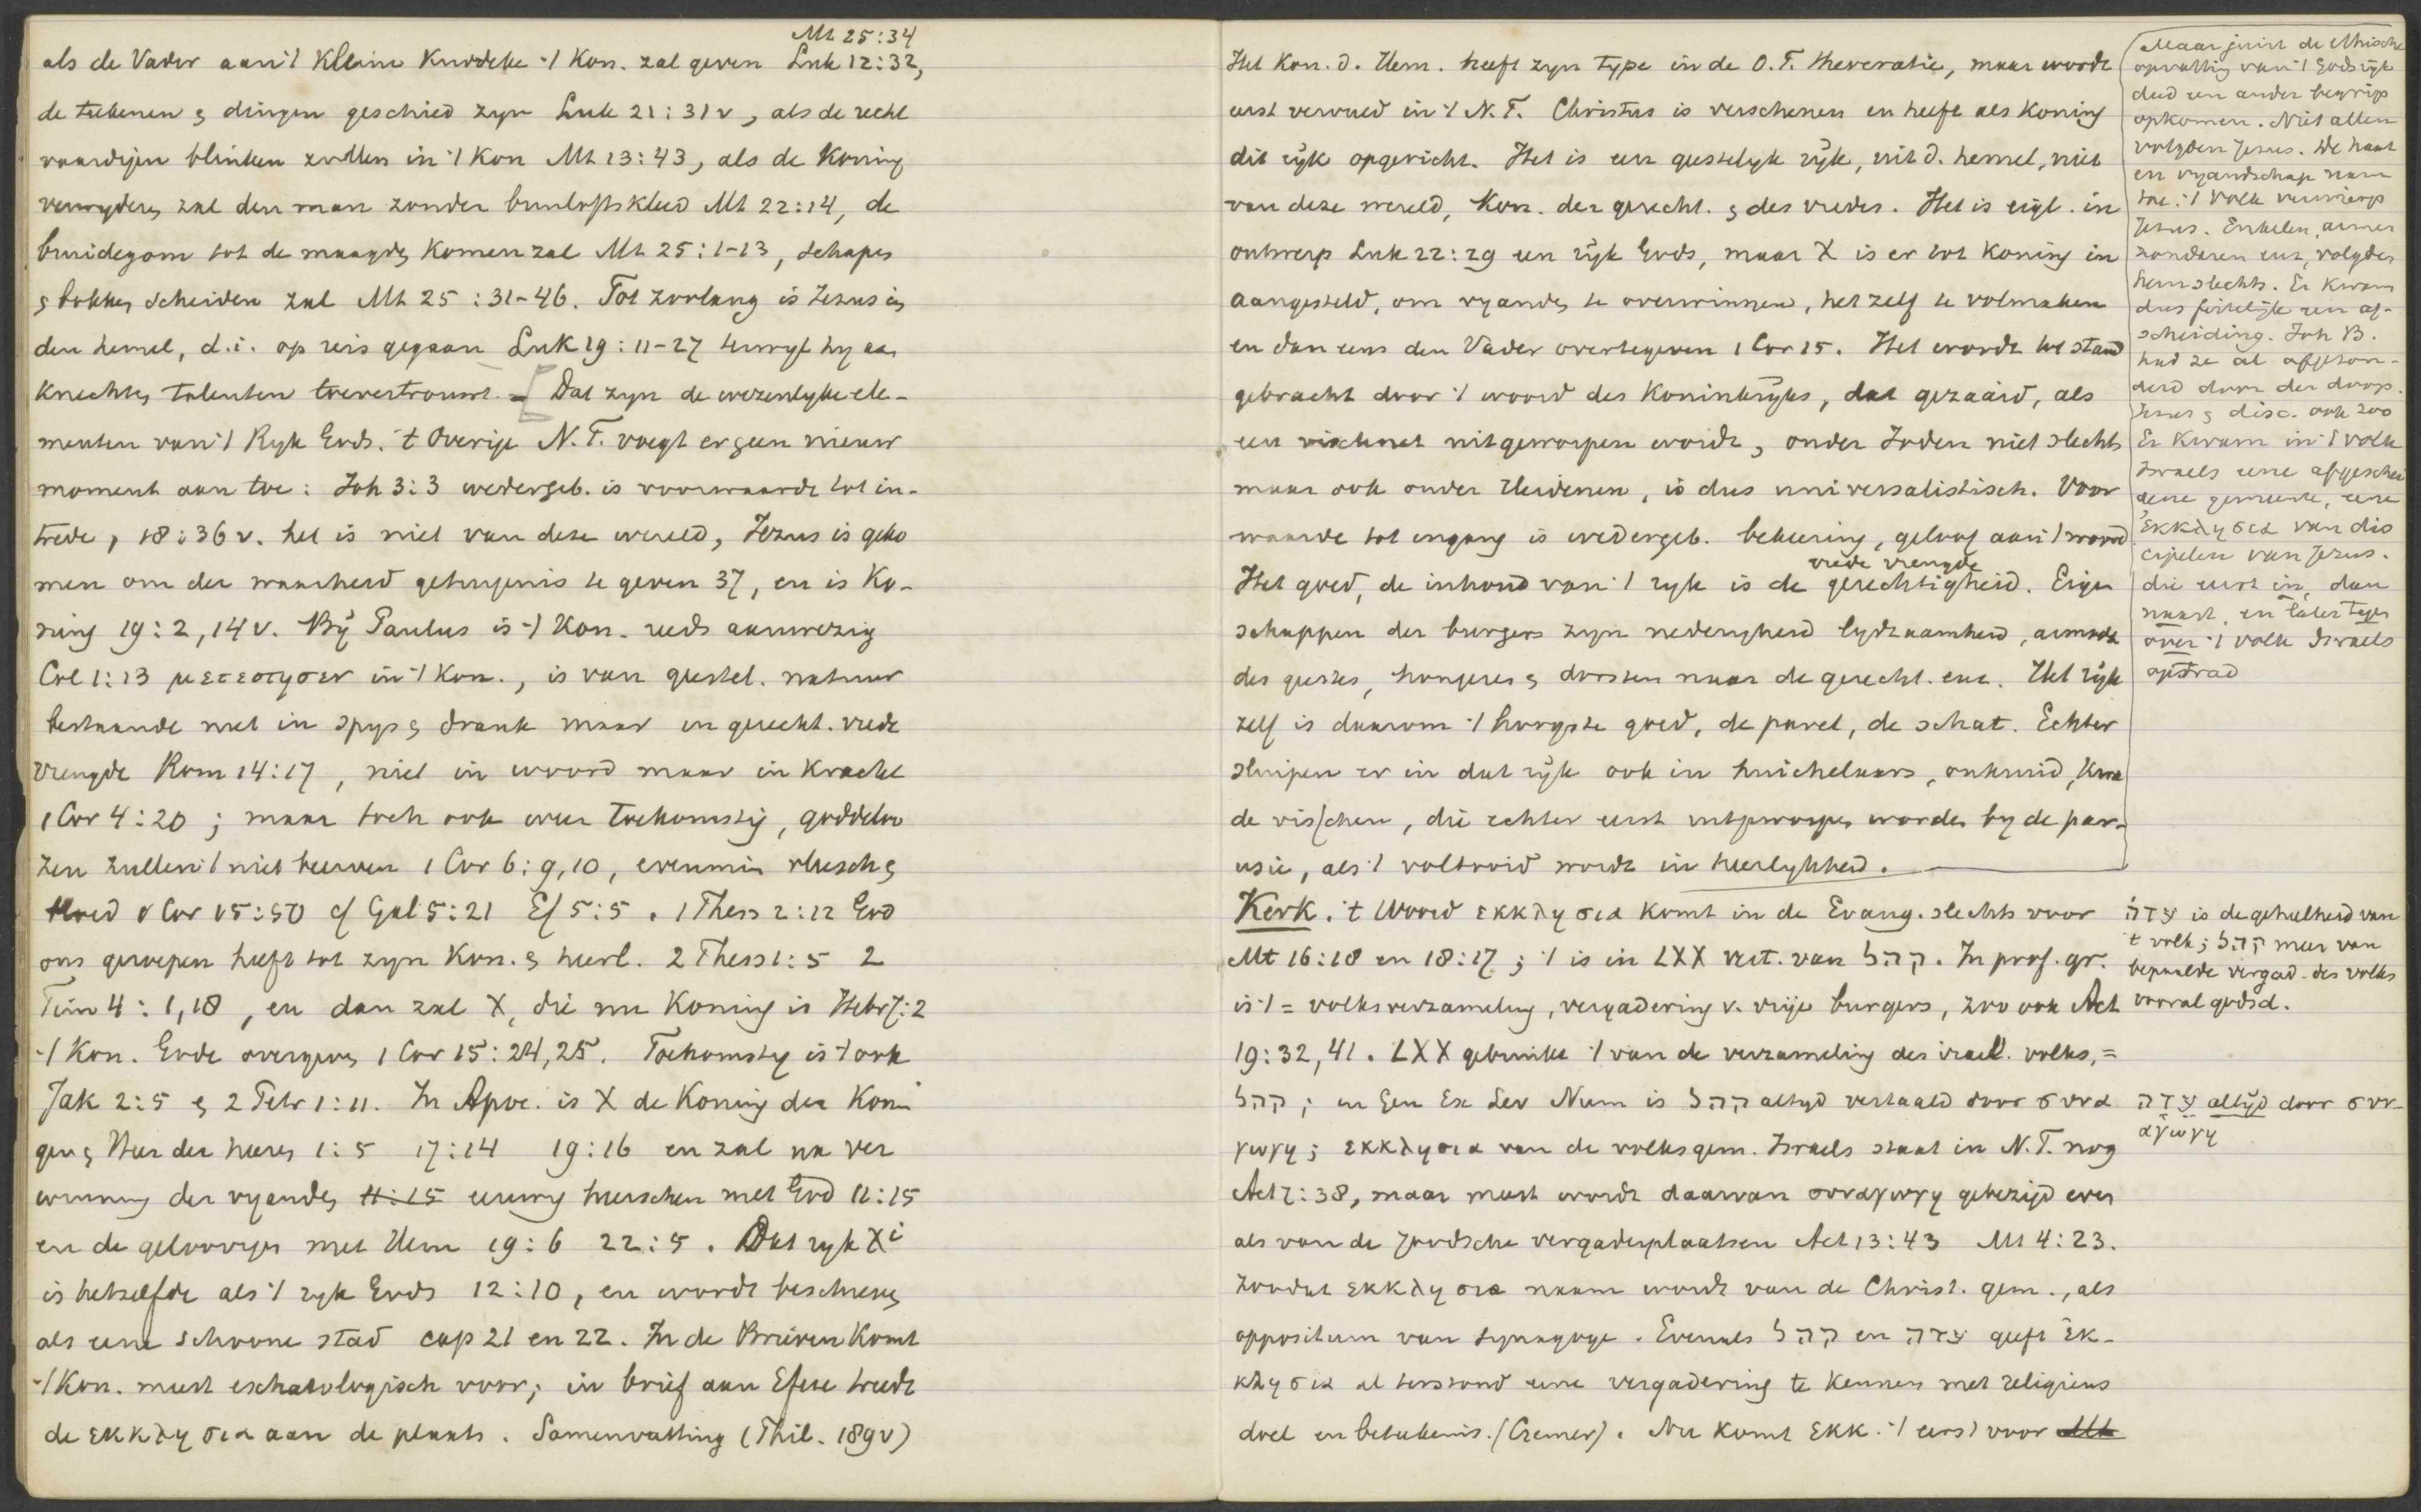 Mt 25:34
als de Vader aan 't Kleine Kuddeke 't Kon. zal geven Luk 12:32,
de teekenen & dingen geschied zyn Luk 21:31v, als de recht
vaardigen blinken zullen in 't Kon Mt 13:43, als de Koning
verwyderen zal den man zonder bruiloftskleed Mt 22:14, de
bruidegom tot de maagden Komen zal Mt 25:1-13, schapen
& bokken scheiden zal Mt 25:31-46. Tot zoolang is Jezus in
den hemel, d.i. op reis gegaan Luk 19:11-27 terwyl hy aan
Knechten talenten toevertrouwt. – [Dat zyn de wezenlyke ele-
menten van 't Ryk Gods. 't Overige N.T. voegt er geen nieuw
moment aan toe: Joh 3:3 wedergeb. is voorwaarde tot in-
trede, 18:36v. het is niet van deze wereld, Jezus is geko
men om der waarheid getuigenis te geven 37, en is Ko-
ning 19:2,14v. By Paulus is 't Kon. reeds aanwezig
Col 1:13 μετεστησεν in 't Kon., is van geestel. natuur
bestaande niet in spys & drank maar in gerecht. vrede
vreugde Rom 14:17, niet in woord maar in Kracht
1 Cor 4:20; maar toch ook weer toekomstig, goddeloo
zen zullen 't niet beerven 1 Cor 6:9,10, evenmin vleesch &
bloed 1 Cor 15:50 cf Gal 5:21 Ef 5:5. 1 Thess 2:12 God
ons geroepen heeft tot zyn Kon. & heerl. 2 Thess 1:5 2
Tim 4:1,18, en dan zal X, die nu Koning is Hebr 7:2
't Kon. Gode overgeven 1 Cor 15:24,25. Toekomstig is 't ook
Jak 2:5 & 2 Petr 1:11. In Apoc. is X de Koning der Koni
gen & Heer der heeren 1:5 17:14 19:16 en zal na ver
winning der vyanden 11:15 eeuwig heerschen met God 11:15
en de geloovigen met Hem 19:6 22:5. Dat ryk Xi
is hetzelfde als 't ryk Gods 12:10, en wordt beschreven
als eene schoone stad cap 21 en 22. In de Brieven Komt
't Kon. meest eschatologisch voor; in brief aan Efeze treedt
de εκκλησια aan de plaats. Samenvatting (Thil. 189v)
Het Kon. d. Hem. heeft zyn type in de O.T. theocratie, maar wordt
eerst vervuld in 't N.T. Christus is verschenen en heeft als Koning
dit ryk opgericht. Het is een geestelyk ryk, uit d. hemel, niet
van deze wereld, Kon. der gerecht. & des vredes. Het is eigl. in
ontwerp Luk 22:29 een ryk Gods, maar X is er tot Koning in
aangesteld, om vyanden te overwinnen, het zelf te volmaken
en dan eens den Vader overtegeven 1 Cor 15. Het wordt tot stand
gebracht door 't woord des Koninkryks, dat gezaaid, als
een vischnet uitgeworpen wordt, onder Joden niet slechts
maar ook onder Heidenen, is dus universalistisch. Voor
waarde tot ingang is wedergeb. bekeering, geloof aan 't woord
vrede vreugde
Het goed, de inhoud van 't ryk is de gerechtigheid. Eigen
schappen der burgers zyn nederigheid lydzaamheid, armoede
des geestes, hongeren & dorsten naar de gerecht. enz. Het ryk
zelf is daarom 't hoogste goed, de parel, de schat. Echter
sluipen er in dat ryk ook in huichelaars, onkruid, Kwa
de visschen, die echter eerst uitgeworpen worden by de par-
usie, als 't voltooid wordt in heerlykheid.
Kerk. 't Woord εκκλησια komt in de Evang. slechts voor
Mt 16:18 en 18:17; 't is in LXX vert. van קהל. In prof. gr.
is 't = volksverzameling, vergadering v. vrije burgers, zoo ook Act
19:32,41. LXX gebruikt 't van de verzameling des israel. volks, =
קהל; in Gen Ex Lev Num is קהל altyd vertaald door συνα
γωγη; εκκλησια van de volksgem. Israels staat in N.T. nog
Act 7:38, maar meest wordt daarvan συναγωγη gebezigd even
als van de Joodsche vergaderplaatsen Act 13:43 Mt 4:23.
zoodat εκκλησια naam wordt van de Christ. gem., als
oppositum van synagoge. Evenals קהל en עדה geeft εκ-
κλησια al terstond eene vergadering te kennen met religieus
doel en beteekenis. (Cremer). Nu komt εκκ. 't eerst voor Mt
Maar juist de ethische
opvatting van 't Godsryk
deed een ander begrip
opkomen. Niet allen
volgden Jezus. De haat
en vyandschap nam
toe. 't Volk verwierp
Jezus. Enkelen, armen
zondaren enz, volgden
hem slechts. Er kwam
dus feitelijk een af-
scheiding. Joh B.
had ze al afgezon-
derd door den doop.
Jezus & disc. ook zoo
Er kwam in 't volk
Israels eene afgeschei
dene gemeente, eene
εκκλησια van dis
cipelen van Jezus.
die eerst in, dan
naast, en later tegen
over 't volk Israels
optrad
עדה is de geheelheid van
't volk; קהל meer van
bepaalde vergad. des volks
vooral godsd.
עדה altijd door συν-
αγωγη